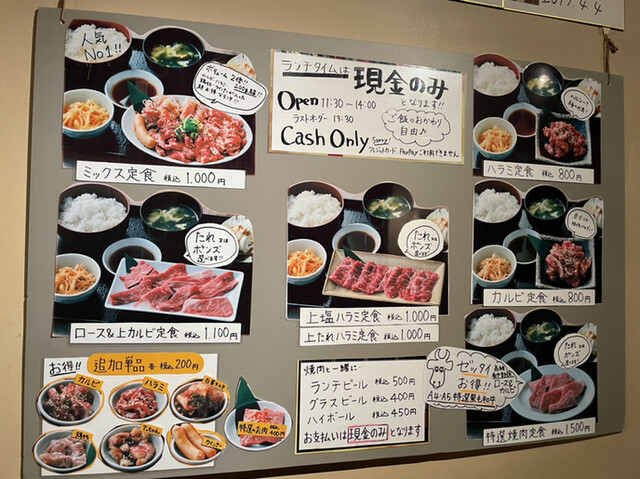 2019.4.4
人気
No.1!!
ボリューム2倍!!
ミックス定食 税込 1.000円
ランチタイムは 現金のみ
となります!!
Open 11:30〜14:00
ラストオーダー 13:30
Cash Only
ご飯のおかわり
自由♪
Sorry
クレジットカード PayPay ご利用できません
ハラミ定食 税込 800円
たれ又は
ポンズ
選べます!!
ロース&上カルビ定食 税込 1.100円
たれ又は
ポンズ
選べます!!
上塩ハラミ定食 税込 1.000円
上たれハラミ定食 税込 1.000円
カルビ定食 税込 800円
お得!! 追加単品 各 税込 200円
カルビ
ハラミ
豚ホルモン
鶏もも
マルチョウ
ウインナー
特選のお肉 税込 400円
焼肉と一緒に…
ランチビール 税込 500円
グラスビール 税込 400円
ハイボール 税込 450円
お支払いは現金のみとなります
ゼッタイ
お得!!
ロース&
カルビ
A4・A5 特選黒毛和牛
たれ又は
ポンズ
選べます
特選焼肉定食 税込 1.500円